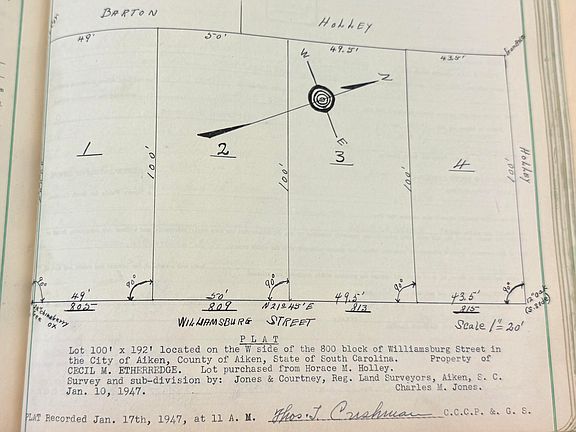 BARTON
HOLLEY
49'
50'
49.5'
43.5'
W
N
E
1
2
3
4
100'
100'
100'
100'
Holley
90°
90°
90°
90°
90°
49'
50'
49.5'
43.5'
805
809
N 21° 45' E
813
815
WILLIAMSBURG STREET
Scale 1" = 20'
PLAT
Lot 100' x 192' located on the W side of the 800 block of Williamsburg Street in
the City of Aiken, County of Aiken, State of South Carolina. Property of
CECIL M. ETHERREDGE. Lot purchased from Horace M. Holley.
Survey and sub-division by: Jones & Courtney, Reg. Land Surveyors, Aiken, S. C.
Jan. 10, 1947. Charles M. Jones.
PLAT Recorded Jan. 17th, 1947, at 11 A. M. Thos. T. Cushman C.C.C.P. & G. S.